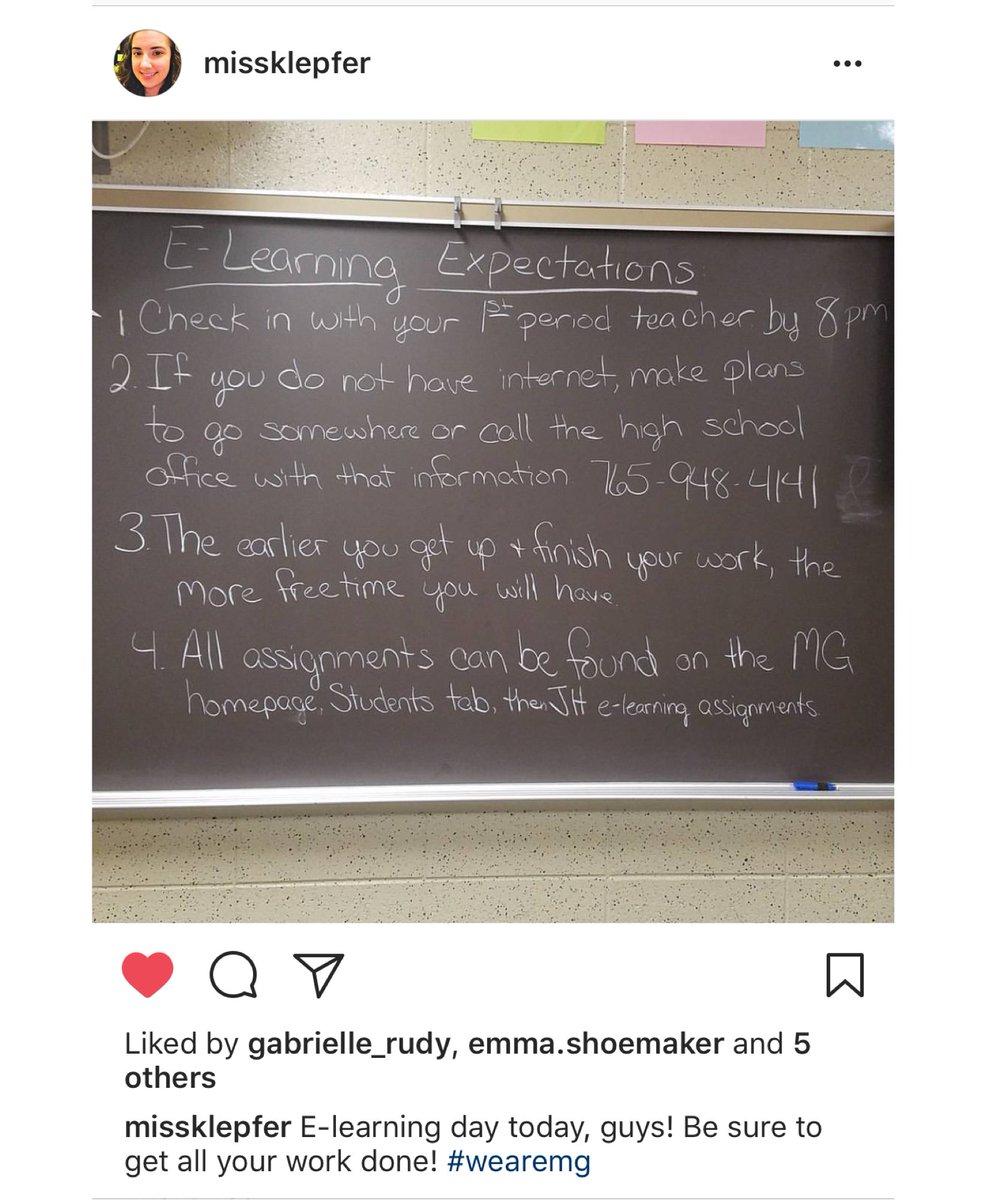 missklepfer
E-Learning Expectations
1. Check in with your 1st period teacher by 8pm
2. If you do not have internet, make plans
to go somewhere or call the high school
office with that information 765-948-4141
3. The earlier you get up + finish your work, the
more freetime you will have.
4. All assignments can be found on the MG
homepage, Students tab, then JH e-learning assignments.
Liked by gabrielle_rudy, emma.shoemaker and 5
others
missklepfer E-learning day today, guys! Be sure to
get all your work done! #wearemg